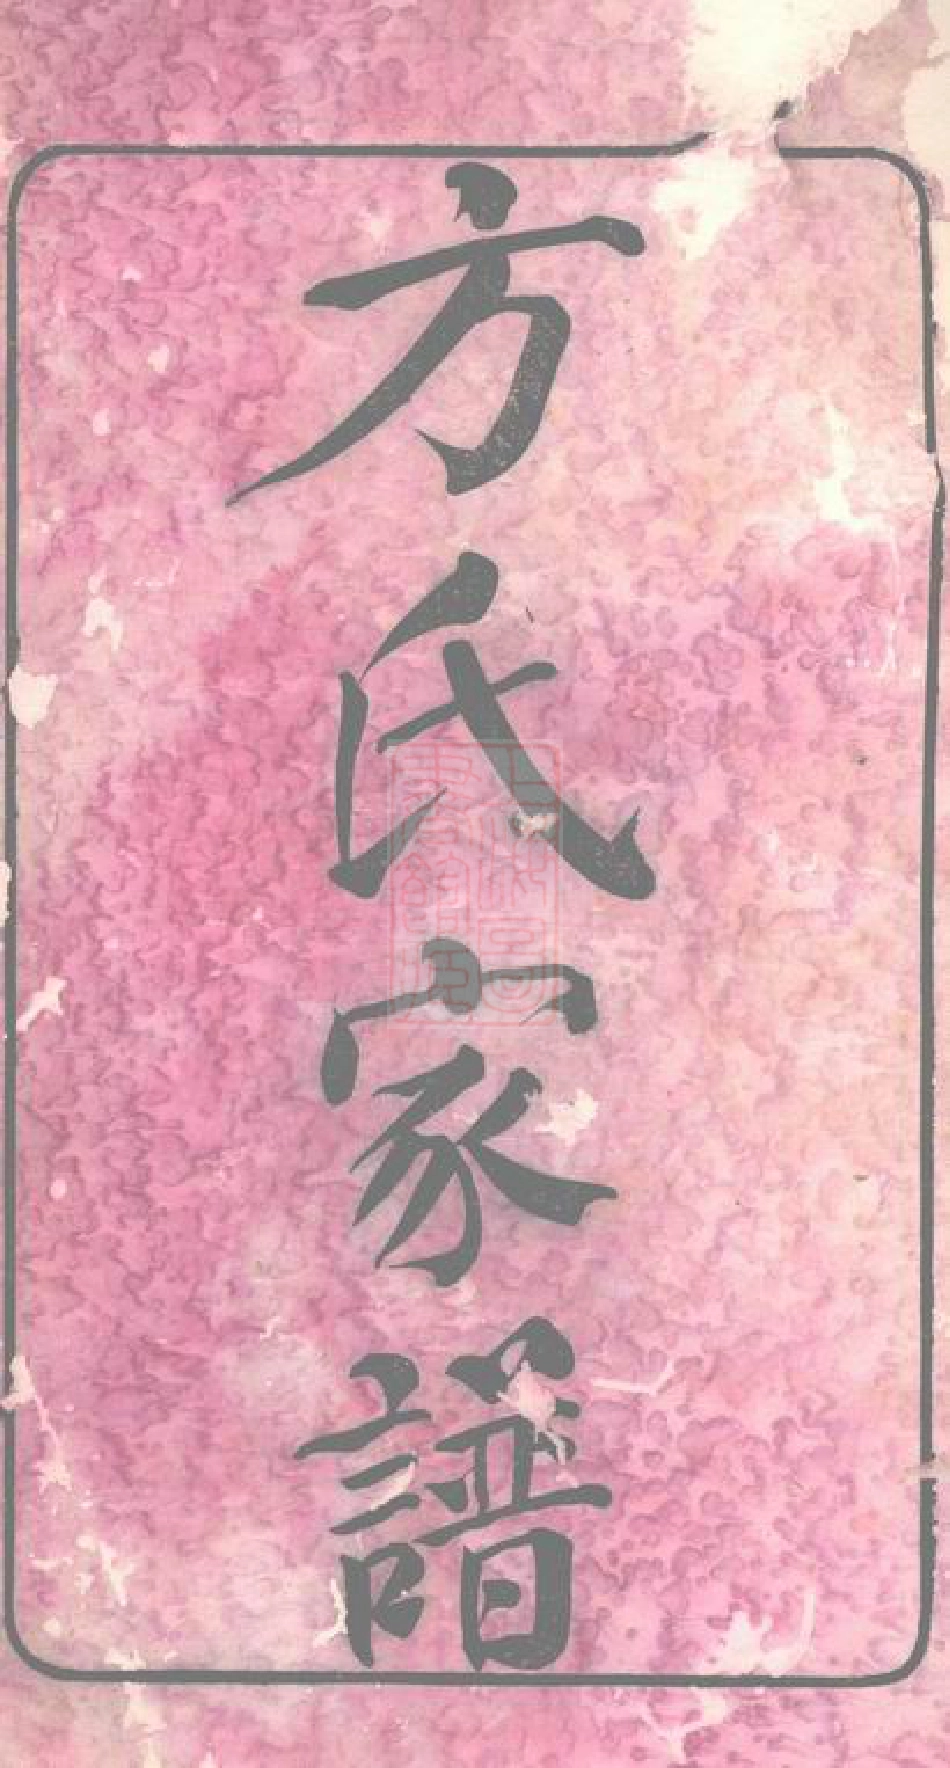 方氏家譜